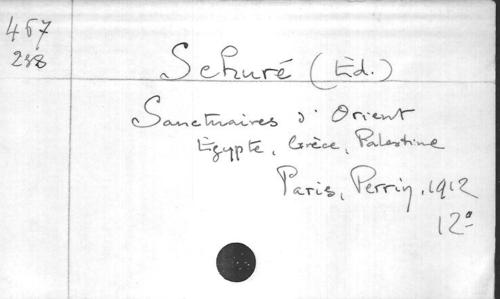 467
288
Schuré (Ed.)
Sanctuaires d'Orient
Egypte, Grèce, Palestine
Paris, Perrin, 1912
12º